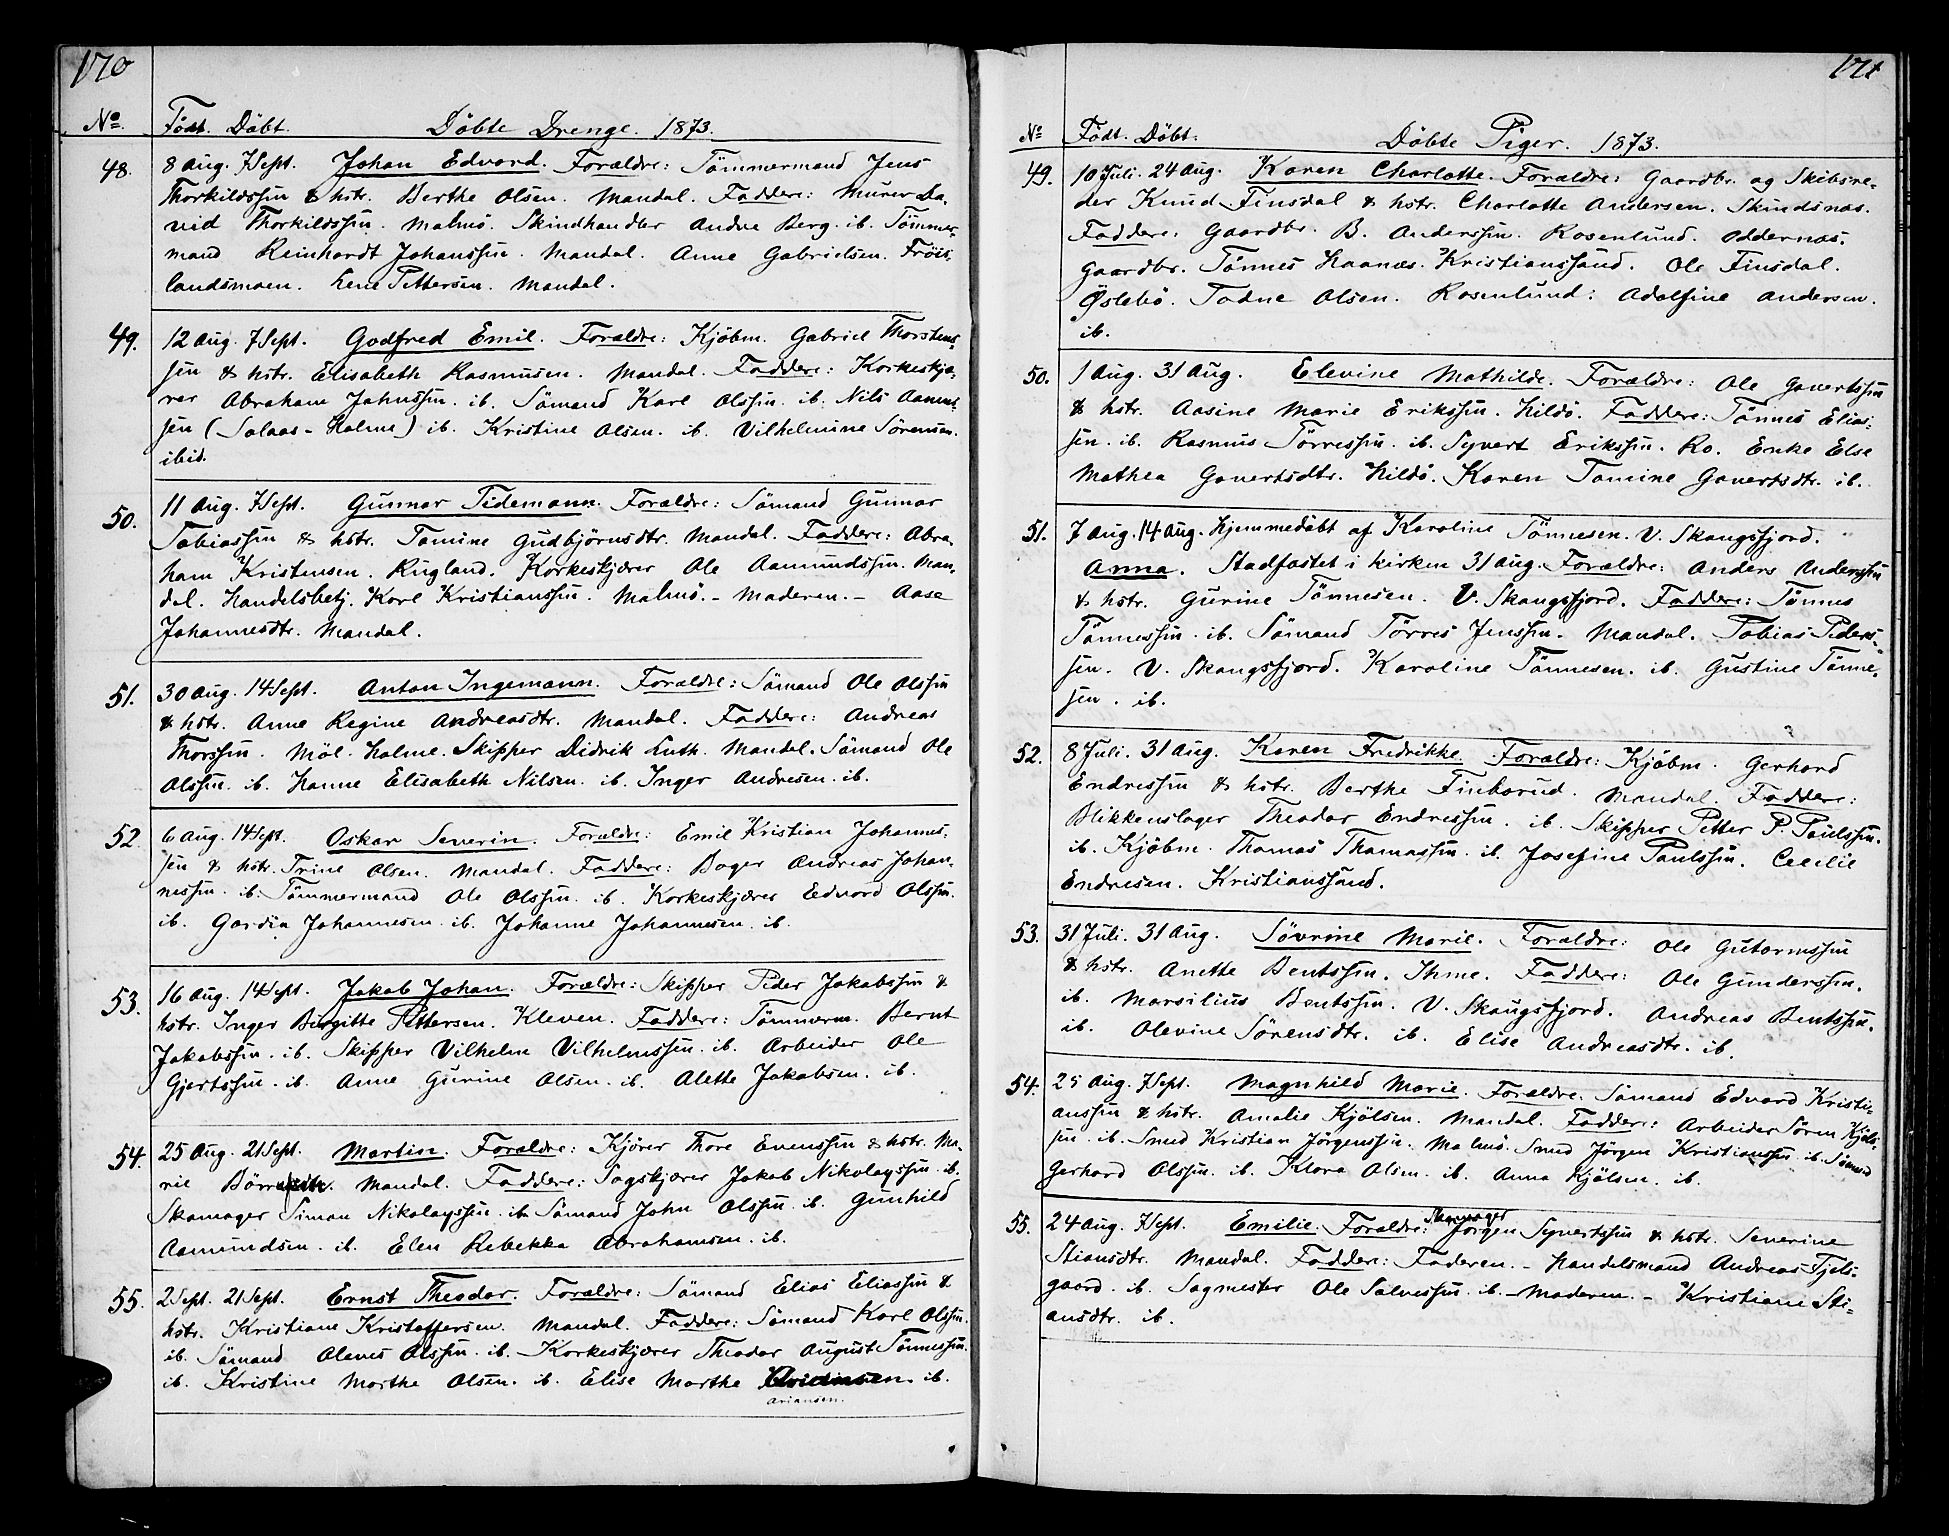 170
No. Födt. Döbt. Döbte Drenge. 1873.
48. 8 Aug. 7 Sept. Johan Edvard. Forældre: Tömmermand Jens
Thorkildssen & hstr. Berthe Olsen. Mandal. Faddere: Murer Da-
vid Thorkildssen. Malmö. Skindhandler Andre Berg. ib. Tömmer-
mand Reinhardt Johanssen. Mandal. Anne Gabrielsen. Fröis-
landsmoen. Lene Pettersen. Mandal.
49. 12 Aug. 7 Sept. Godfred Emil. Forældre: Kjöbm. Gabriel Thorstens-
sen & hstr. Elisabeth Rasmusen. Mandal. Faddere: Korkeskjæ-
rer Abraham Jahnssen. ib. Sömand Karl Olssen. ib. Nils Aanens-
sen (Solaas-Holme) ib. Kristine Olsen. ib. Vilhelmine Sörensen.
ibid.
50. 11 Aug. 7 Sept. Gunnar Tidemann. Forældre: Sömand Gunnar
Tobiassen & hstr. Tomine Gudbjörnsdtr. Mandal. Faddere: Abra-
ham Kristensen. Rugland. Korkeskjærer Ole Aamundssen. Man-
dal. Handelsbetj. Karl Kristianssen. Malmö. - Moderen. - Aase
Johannesdtr. Mandal.
51. 30 Aug. 14 Sept. Anton Ingemann. Forældre: Sömand Ole Olssen
& hstr. Anne Regine Andreasdtr. Mandal. Faddere: Andreas
Thorssen. Möl. Holme. Skipper Didrik Luth. Mandal. Sömand Ole
Olssen. ib. Hanne Elisabeth Nilsen. ib. Inger Andresen. ib.
52. 6 Aug. 14 Sept. Oskar Severin. Forældre: Emil Kristian Johannes-
sen & hstr. Trine Olsen. Mandal. Faddere: Bager Andreas Johan-
nessen. ib. Tömmermand Ole Olssen. ib. Korkeskjærer Edvard Olssen.
ib. Gordia Johannesen. ib. Johanne Johannesen. ib.
53. 16 Aug. 14 Sept. Jakob Johan. Forældre: Skipper Peder Jakobssen &
hstr. Inger Birgitte Pettersen. Kleven. Faddere: Tömmerm. Bernt
Jakobssen. ib. Skipper Vilhelm Vilhelmssen. ib. Arbeider Ole
Gjertssen. ib. Anne Gurine Olsen. ib. Alette Jakobsen. ib.
54. 25 Aug. 21 Sept. Martin. Forældre: Kjörer Thore Evenssen & hstr. Ma-
rie Mandal. Faddere: Sagskjærer Jakob Nikolayssen. ib.
Skomager Simon Nikolayssen. ib. Sömand John Olssen. ib. Gunhild
Aamundsen. ib. Elen Rebekka Abrahamsen. ib.
55. 2 Sept. 21 Sept. Ernst Theodor. Forældre: Sömand Elias Eliassen &
hstr. Kristiane Kristoffersen. Mandal. Faddere: Sömand Karl Olssen.
ib. Sömand Olaves Olssen. ib. Korkeskjærer Theodor August Tönnessen.
ib. Kristine Marthe Olsen. ib. Elise Marthe ib.
Ariansen.
171
No Födt. Döbt. Döbte Piger. 1873.
49. 10 Juli. 24 Aug. Karen Charlotte. Forældre: Gaardbr. og Skibsre-
der Knud Finsdal & hstr. Charlotte Andersen. Skindsnæs.
Faddere: Gaardbr. B. Anderssen. Rosenlund. Oddernæs.
Gaardbr. Tönnes Haanæs. Kristianssand. Ole Finsdal.
Öslebö. Tadne Olsen. Rosenlund: Adolfine Andersen.
ib.
50. 1 Aug. 31 Aug. Elevine Mathilde. Forældre: Ole Govertssen
& hstr. Aasine Marie Erikssen. Hildö. Faddere: Tönnes Elias-
sen. ib. Rasmus Törressen. ib. Syvert Erikssen. Ro. Enke Else
Mathea Govertsdtr. Hildö. Karen Tomine Govertsdtr. ib.
51. 7 Aug. 14 Aug. Hjemmedöbt af Karoline Tönnesen. V. Skangsfjord.
Anna. Stadfæstet i Kirken 31 Aug. Forældre: Anders Anderssen
& hstr. Gurine Tönnesen. V. Skangsfjord. Faddere: Tönnes
Tönnessen. ib. Sömand Törres Jenssen. Mandal. Tobias Peders-
sen. V. Skangsfjord. Karoline Tönnesen. ib. Gustine Tönne-
sen. ib.
52. 8 Juli. 31 Aug. Karen Fredrikke. Forældre: Kjöbm. Gerhard
Endressen & hstr. Berthe Finborud. Mandal. Faddere:
Blikkenslager Theodor Endressen. ib. Skipper Petter P. Paulssen.
ib. Kjöbm. Thomas Thomassen. ib. Josefine Paulssen. Cecilie
Endresen. Kristianssand.
53. 31 Juli. 31 Aug. Sövrine Marie. Forældre: Ole Gutormssen
& hstr. Anette Bentssen. Ihme. Faddere: Ole Gunderssen.
ib. Marsilius Bentssen. V. Skangsfjord. Andreas Bentssen.
ib. Olevine Sörensdtr. ib. Elise Andreasdtr. ib.
54. 25 Aug. 7 Sept. Magnhild Marie. Forældre: Sömand Edvard Kristi-
anssen & hstr. Amalie Kjölsen. Mandal. Faddere: Arbeider Sören Kjöls-
sen. ib. Smed Kristian Jörgenssen. Malmö. Smed Jörgen Kristianssen. ib. Sömand
Gerhard Olssen. ib. Klara Olsen. ib. Anna Kjölsen. ib.
55. 24 Aug. 7 Sept. Emilie. Forældre: Skomager Jörgen Syvertssen & hstr. Severine
Stiansdtr. Mandal. Faddere: Faderen. - Handelsmand Andreas Fjels-
gaard. ib. Sagmester Ole Salvessen. ib. - Moderen. - Kristiane Sti-
ansdtr. ib.